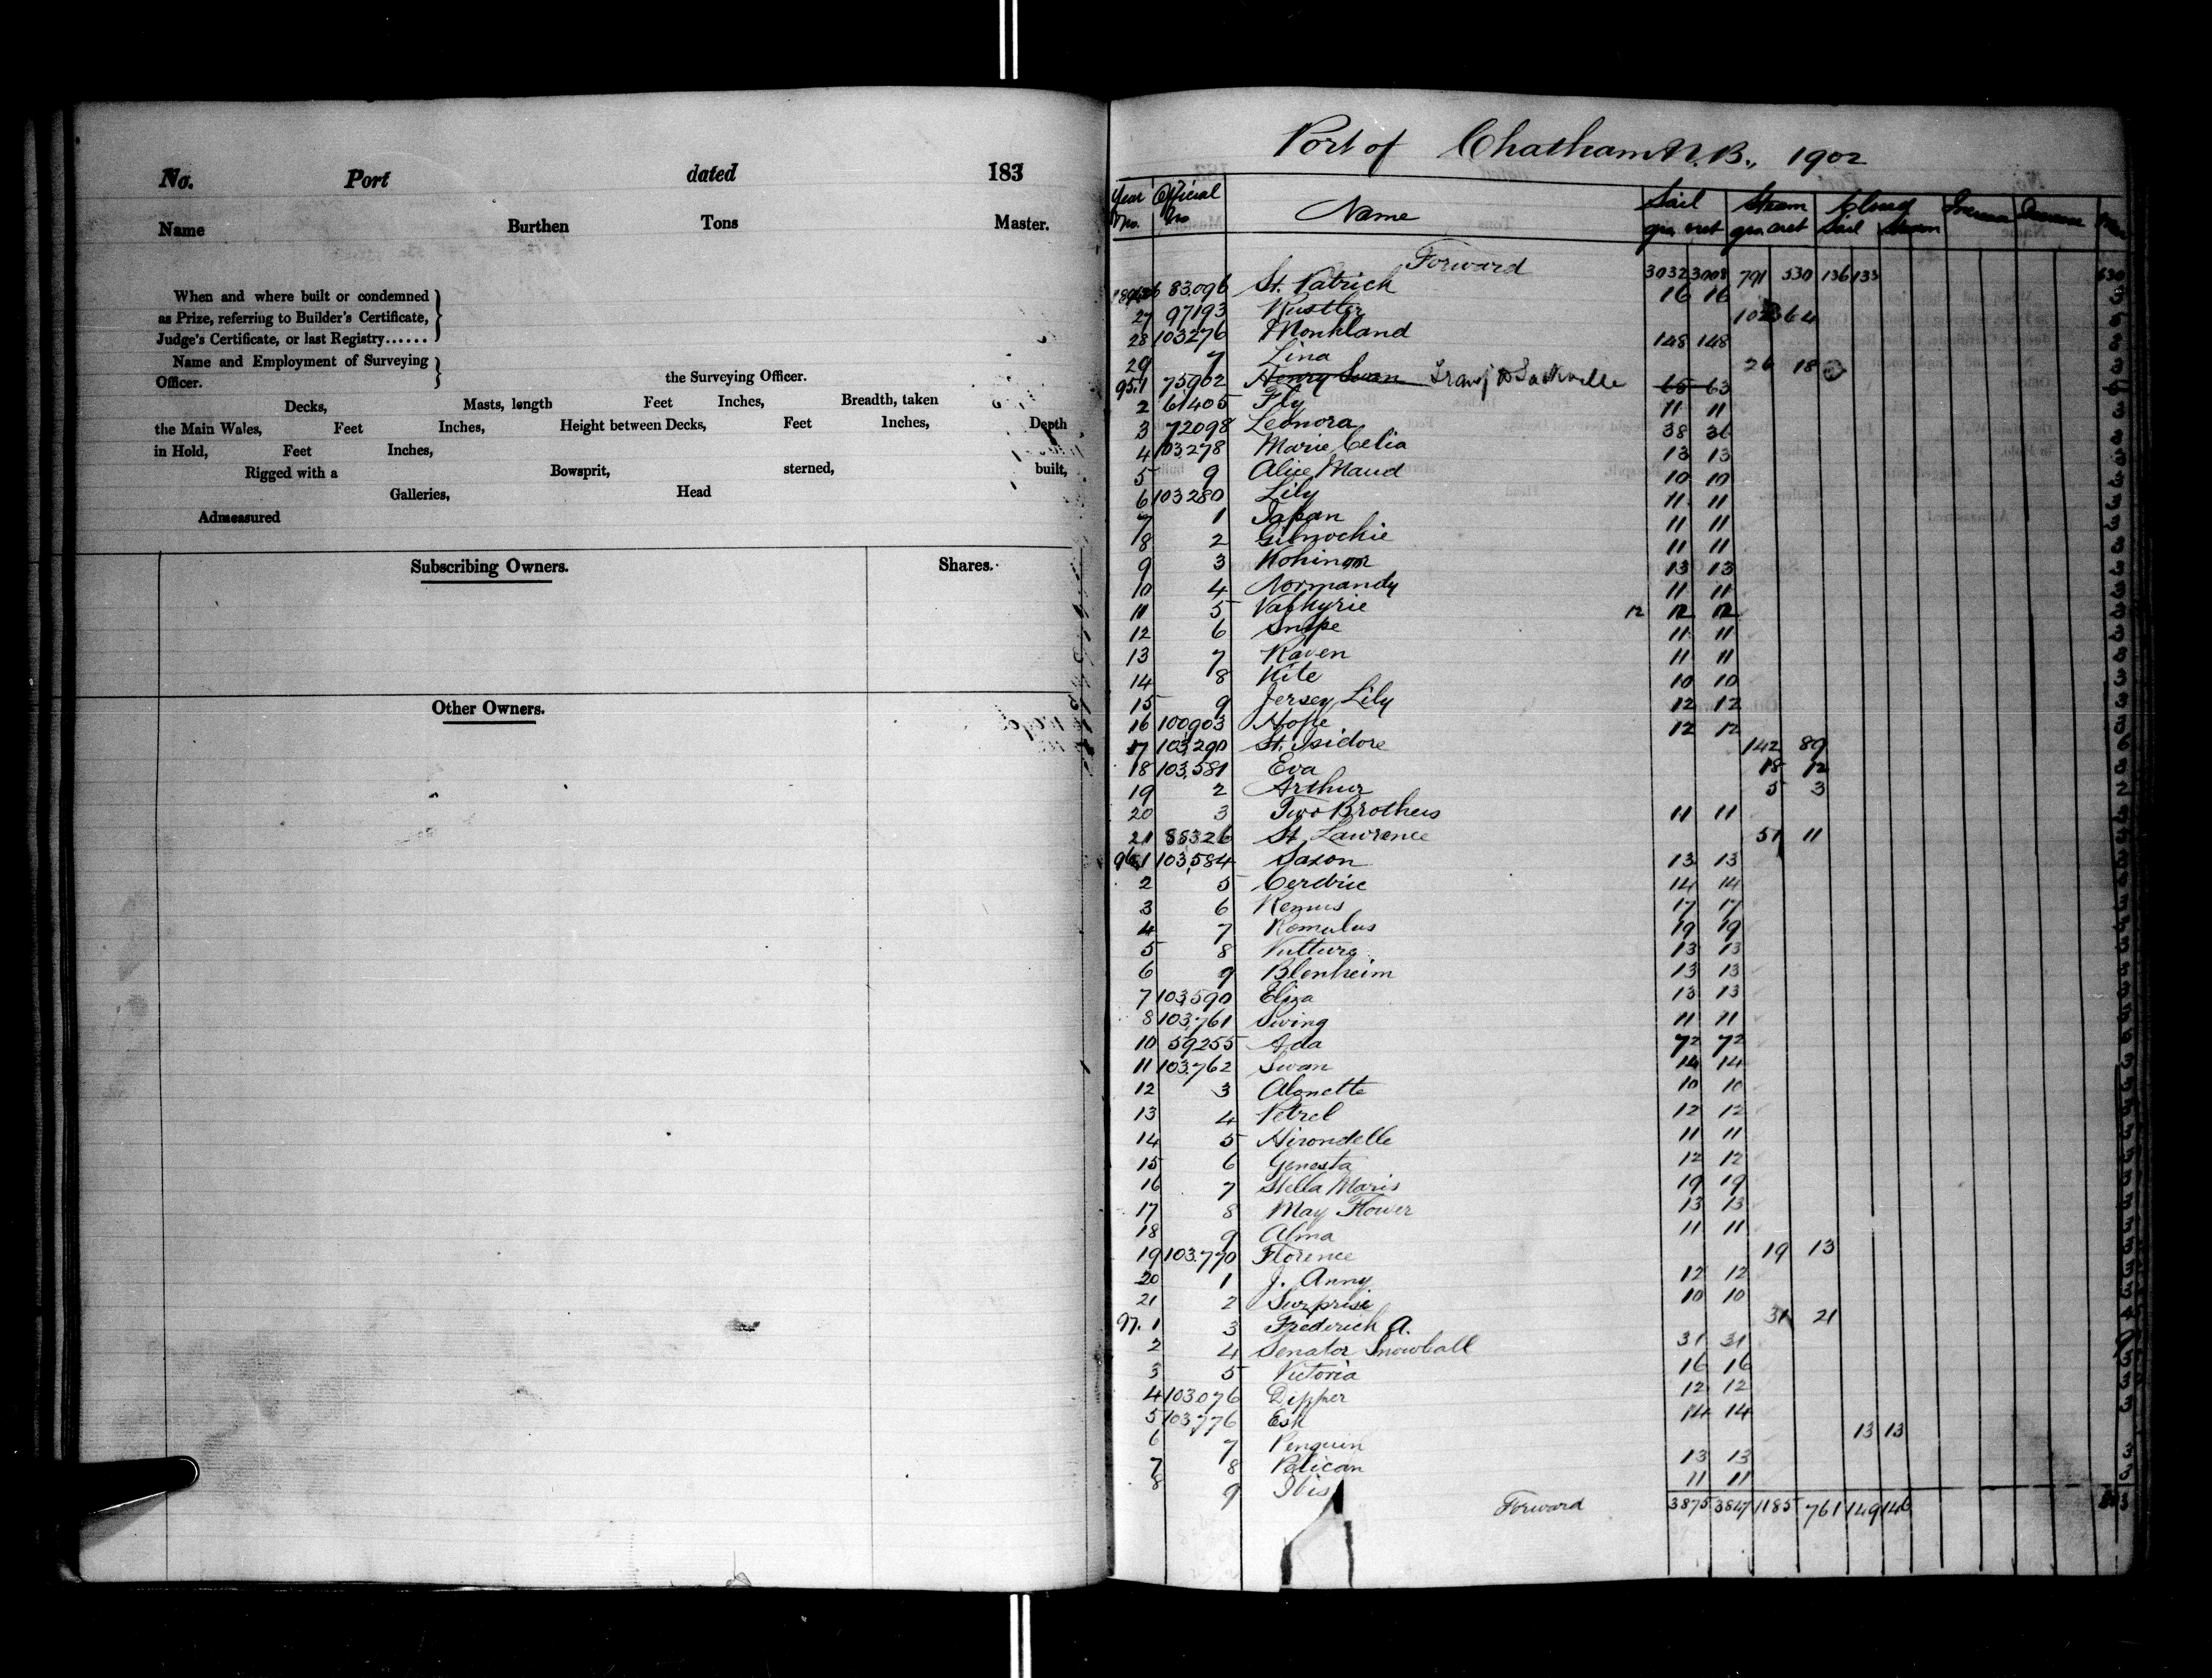 No. Port dated 183
Name Burthen Tons Master.
When and where built or condemned
as Prize, referring to Builder's Certificate,
Judge's Certificate, or last Registry......
Name and Employment of Surveying
Officer. the Surveying Officer.
Decks, Masts, length Feet Inches, Breadth, taken
the Main Wales, Feet Inches, Height between Decks, Feet Inches, Depth
in Hold, Feet Inches,
Rigged with a Bowsprit, sterned, built,
Galleries, Head
Admeasured
Subscribing Owners. Shares.
Other Owners.
Port of Chatham N.B., 1902
Year No. Official No Name Sail Steam Sail Steam
Forward 3032 3008 791 530 136 133 630
26 83,096 St. Patrick 16 16 3
27 97193 Rustler 64
28 103276 Monkland 148 148
29 7 Lina 26 18
95.1 75902 Henry Swan Transf to Sackville 65 63
2 61405 Fly 11 11
3 72098 Leonora 38 36
4 103,278 Marie Celia 13 13 3
5 9 Alice Maud 10 10 3
6 103280 Lily 11 11 3
7 1 Japan 11 11 3
8 2 Gilnockie 11 11 3
9 3 Kohinoor 13 13 3
10 4 Normandy 11 11 3
11 5 Valkyrie 12 12 12 3
12 6 Snipe 11 11 3
13 7 Raven 11 11 3
14 8 Kite 10 10 3
15 9 Jersey Lily 12 12 3
16 100903 Hope 12 12 3
17 103,290 St. Isidore 142 89
18 103,581 Eva 18 12
19 2 Arthur 5 3 2
20 3 Two Brothers 11 11
21 88326 St. Lawrence 51 11
96.1 103,584 Saxon 13 13
2 5 Cerdric 14 14
3 6 Remus 17 17
4 7 Romulus 19 19
5 8 Vulture 13 13
6 9 Blenheim 13 13
7 103,590 Eliza 13 13
8 103,761 Swing 11 11
10 59255 Ada 72 72
11 103.762 Swan 14 14 3
12 3 Alouette 10 10 3
13 4 Petrel 12 12 3
14 5 Hirondelle 11 11 3
15 6 Genesta 12 12 3
16 7 Stella Maris 19 19 3
17 8 May Flower 13 13 3
18 9 Alma 11 11 3
19 103.770 Florence 19 13
20 1 J. Anny 12 12 3
21 2 Surprise 10 10 3
97. 1 3 Frederick A. 31 21
2 4 Senator Snowball 31 31
3 5 Victoria 16 16 3
4 103.076 Dipper 12 12 3
5 103,776 Esk 14 14 3
6 7 Penguin 13 13
7 8 Pelican 13 13 3
8 9 Ibis 11 11 3
Forward 3875 3847 1185 761 149 146